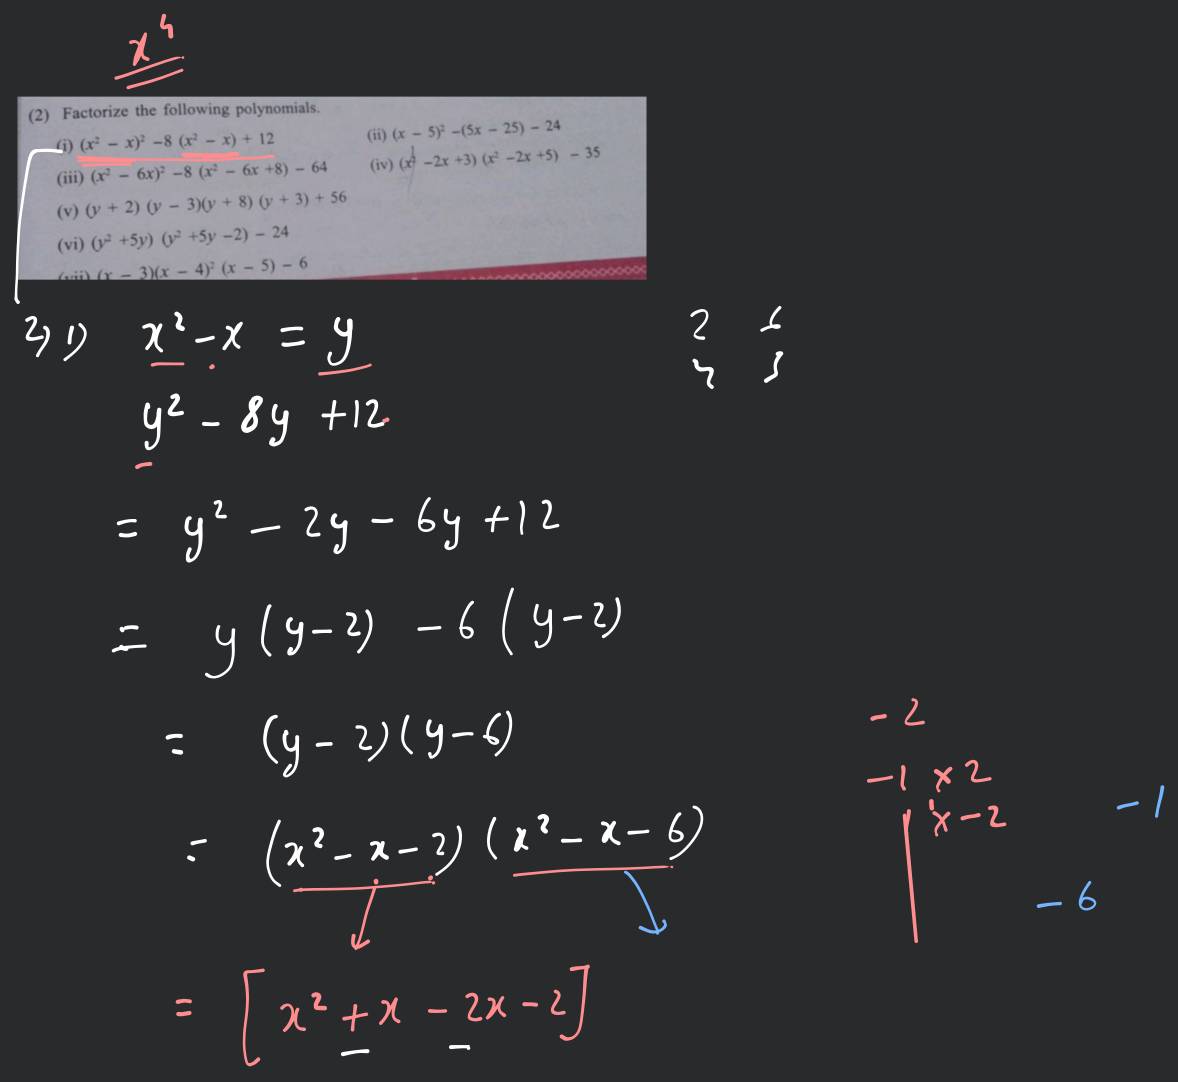 x⁴
(2) Factorize the following polynomials.
(i) (x² − x)² −8 (x² − x) + 12
(ii) (x − 5)² −(5x − 25) − 24
(iii) (x² − 6x)² −8 (x² − 6x +8) − 64
(iv) (x² −2x +3) (x² −2x +5) − 35
(v) (y + 2) (y − 3)(y + 8) (y + 3) + 56
(vi) (y² +5y) (y² +5y −2) − 24
(vii) (x − 3)(x − 4)² (x − 5) − 6
2) 1) x² - x = y
2 6
4 3
y² - 8y +12
= y² - 2y - 6y +12
= y (y-2) - 6 (y-2)
= (y-2)(y-6)
-2
-1 × 2
1 × -2
-1
= (x² - x - 2) (x² - x - 6)
-6
= [x² + x - 2x - 2]